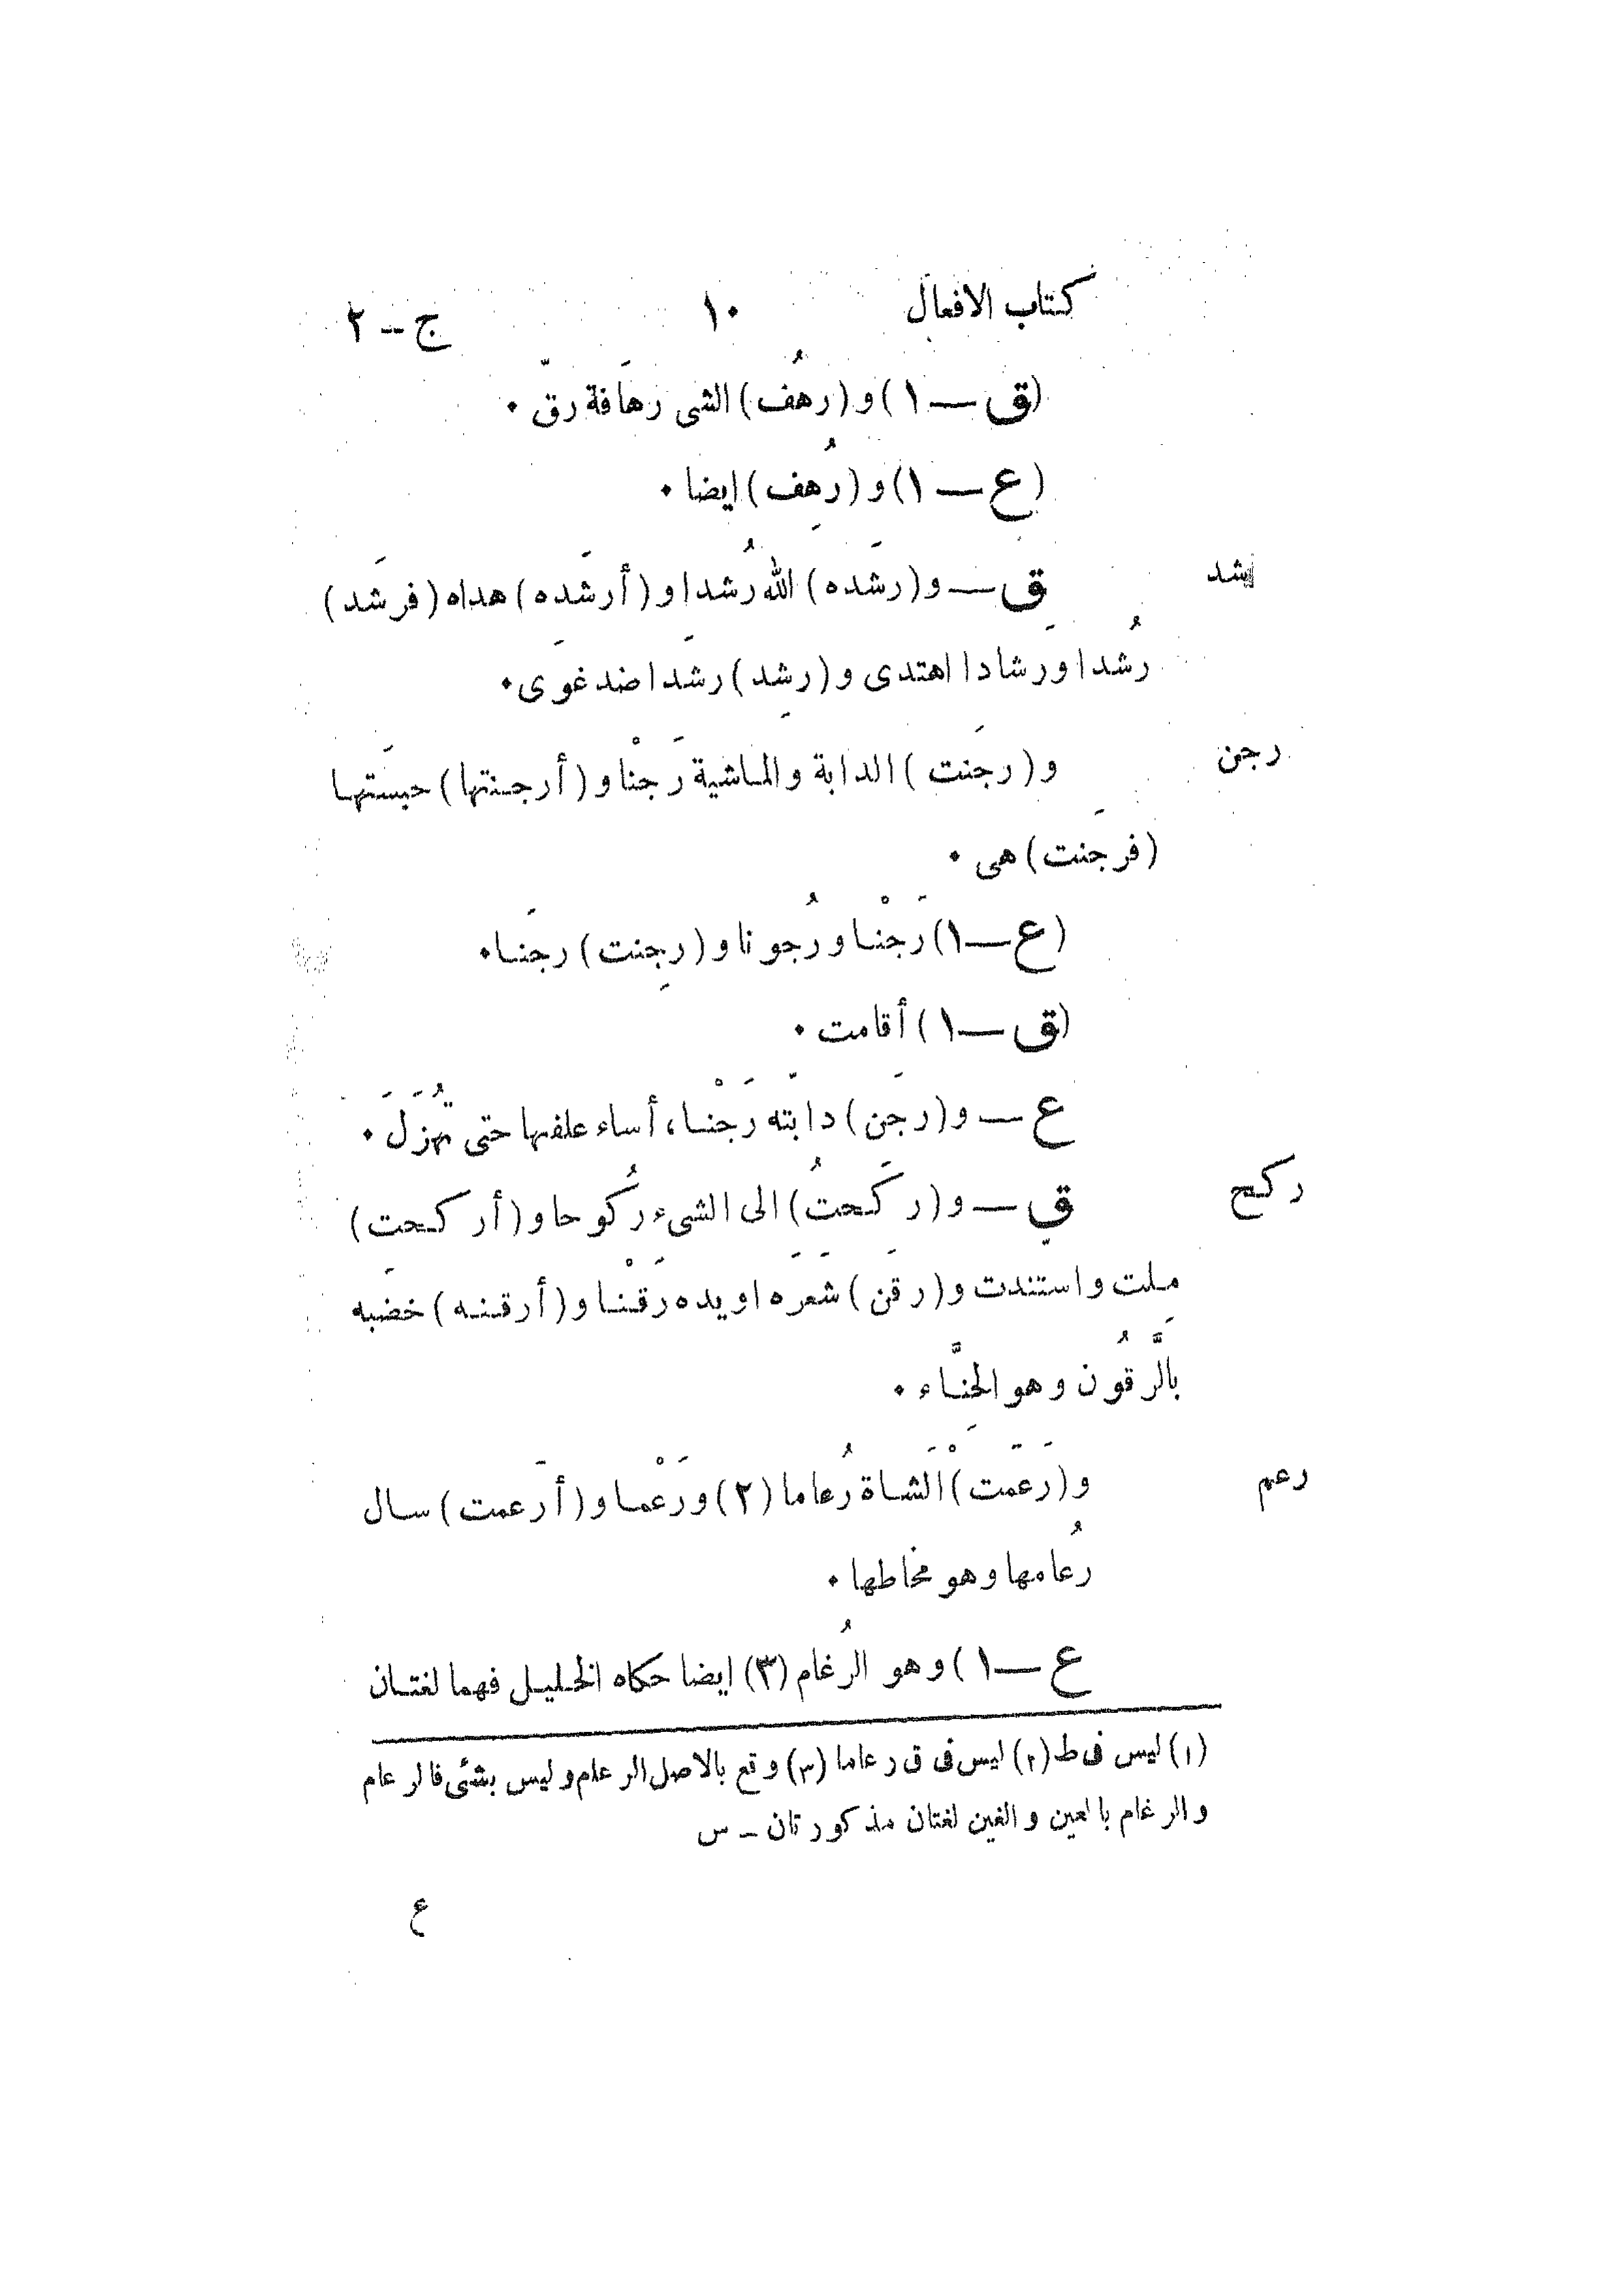 كتاب الافعال ١٠ ج – ٢
(ق — ١) و (رهُف) الشى رهَافة رقّ ٠
(ع — ١) و (رُهِف) ايضا ٠
شد
ق — و (رشَده) الله رُشدا و (أرشَده) هداه (فرشَد)
رُشدا ورَشادا اهتدى و (رشِد) رشَدا ضد غوَى ٠
رجن
و (رجَنت) الدابة والماشية رَجْنا و (أرجنتها) حبسَتها
(فرجَنت) هى ٠
(ع — ١) رَجْنا ورُجونا و (رجِنت) رجَنا ٠
(ق — ١) أقامت ٠
ع — و (رجَن) دابّته رَجْنا، أساء علفها حتى تهُزَلَ ٠
ركح
ق — و (ركَحتُ) الى الشىء رُكوحا و (أركحت)
مِلت واستندت و (رقَن) شعَرَه او يده رَقْنا و (أرقنه) خضَبه
بالَّرقُون وهو الحِنَّاء ٠
رعم
و (رَعَمت) الْشَاة رُعاما (٢) ورَعْما و (أرَعمت) سال
رُعامها وهو مخاطها ٠
ع — ١) وهو الرُغام (٣) ايضا حكاه الخليل فهما لغتان
(١) ليس فى ط (٢) ليس فى ق رعاما (٣) وقع بالاصل الرعلم وليس بشئى فالرعام
والرغام بالعين والغين لغتان مذكورتان – س
ع